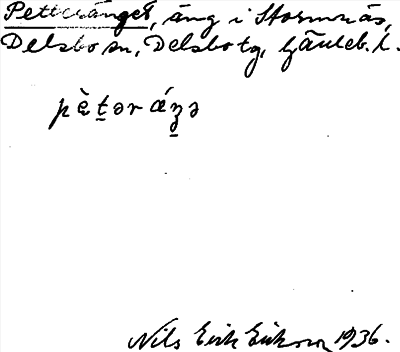 Petteränget, äng i Stormnäs,
Delsbo sn, Delsbo tg, Gävleb. l.
pὲt̠ər áʒ̠ə
Nils Erik Eriksson 1936.